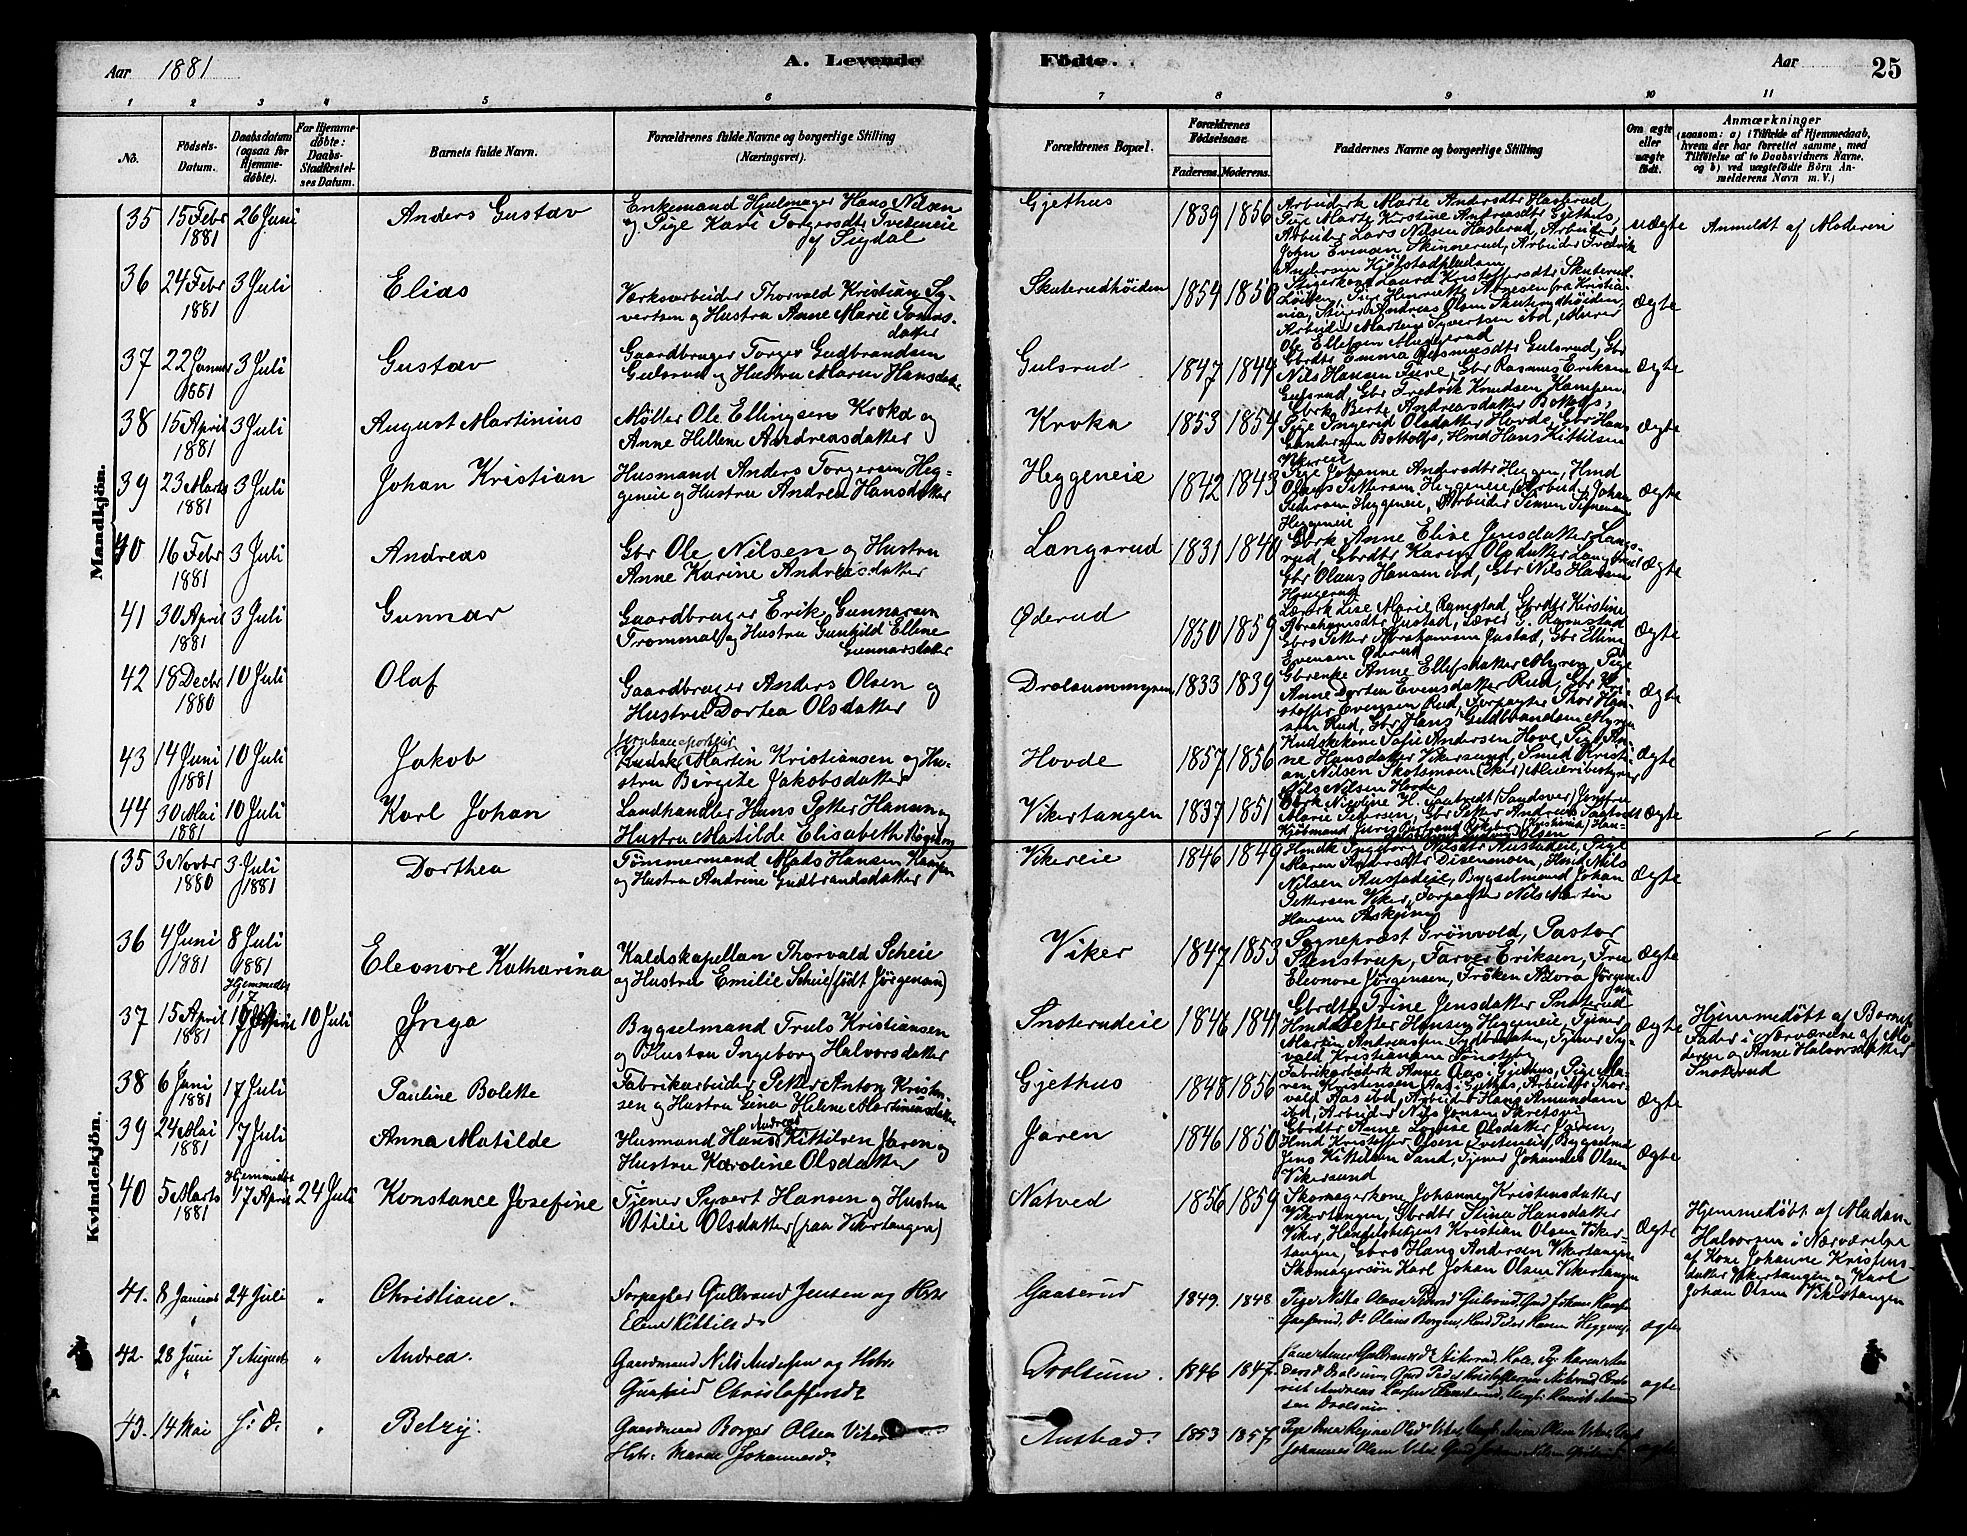 Aar 1881
A. Levende
Födte.
Aar
25
1 2 3 4 5 6 7 8 9 10 11
No.
Födsels-Datum.
Daabsdatum (ogsaa for Hjemme-döbte).
For Hjemme-döbte: Daabs-Stadfæstel-ses Datum.
Barnets fulde Navn.
Forældrenes fulde Navne og borgerlige Stilling (Næringsvei).
Forældrenes Bopæl.
Forældrenes Födselsaar.
Faderens. Moderens.
Faddernes Navne og borgerlige Stilling
Om ægte eller uægte födt.
Anmærkninger
(saasom: a) i Tilfælde af Hjemmedaab, hvem der har forrettet samme, med Tilföielse af to Daabsvidners Navne, og b) ved uægtefödte Börn An-melderens Navn m. V.)
Mandkjön.
35 15 Febr 1881 26 Juni Anders Gustav
Enkemand Hjulmager Hans Nilsen
og Pige Kari Torgersdtr Tveteneie
af Sigdal
Gjethus 1839 1856
Arbeiderk Marte Andrsdtr Haslerud,
Pige Marte Kirstine Andreasdtr Gjethus,
Arbeider Lars Nilsen Haslerud, Arbeider
John Evensen Skinnerud, Arbeider Fredrik
Andersen Kjølstadpladsen
uægte Anmeldt af Moderen
36 24 Febr 1881 3 Juli Elias
Værksarbeider Thorvald Kristian Sy-
vertsen og Hustru Anne Marie Tomas-
datter
Skuterudhöiden 1854 1850
Arbeider Martens Syvertsen ibd, Murer
Ole Ellefsen Muggerud
Ægte
37 22 Januar 1881 3 Juli Gustav
Gaardbruger Torger Gudbrandsen
Gulsrud og Hustru Maren Hansdatter
Gulsrud 1847 1844
Gbrdtr Emma Rasmusdtr Gulsrud, Gbr
Nils Hansen Fure, Gbr Rasmus Eriksen
Gulsrud, Gbr Fredrik Knudsen Kampen
Ægte
38 15 April 1881 3 Juli August Martinius
Møller Ole Ellingsen Kroka og
Anne Hellene Andreasdatter
Kroka 1853 1854
Gbrk Berte Andreasdatter Bottolfs,
Pige Ingerid Olsdatter Hovde, Gbr Hans
Gundersen Bottolfs, Hmd Hans Kittilsen
Vikereie
Ægte
39 23 Marts 1881 3 Juli Johan Kristian
Husmand Anders Torgersen Heg-
geneie og Hustru Andrea Hansdatter
Heggeneie 1842 1843
Pige Johanne Andersdtr Heggen, Hmd
Olaus Pettersen Heggeneie, Arbeid. Johan
Pedersen Heggeneie, Arbeider Simen Simensen
Heggeneie
Ægte
40 16 Febr 1881 3 Juli Andreas
Gbr Ole Nilsen og Hustru
Anne Karine Andreasdatter
Langsrud 1831 1840
Gbrk Anne Elise Jensdatter Langs-
rud, Gbrdtr Karen Olsdatter Langsrud
Gbr Olaus Hansen ibd, Gbr Nils Hansen
Haugerud
Ægte
41 30 April 1881 3 Juli Gunnar
Gaardbruger Erik Gunnarsen
Trommald og Hustru Gunhild Elline
Gunnarsdatter
Øderud 1850 1859
Lærerk Lise Marie Ramstad, Gbrdtr Kirstine
Abrahamsdtr Justad, Lærer G. Ramstad
Gbrs Petter Abrahamsen Justad, Gbr Elling
Evensen Øderud
Ægte
42 18 Decbr 1880 10 Juli Olaf
Gaardbruger Anders Olsen og
Hustru Dortea Olsdatter
Drolsummyren 1833 1839
Gbrenke Anne Ellefsdatter Myren, Pige
Anne Dortea Evensdatter Rud, Gbr Kri-
stoffer Evensen Rud, Forpagter Thor Han-
sen Rud, Gbr Hans Gudbrandsen Myren
Ægte
43 14 Juni 1881 10 Juli Jakob
Kudsk Martin Kristiansen og Hu-
stru Birgite Jakobsdatter
Hovde 1857 1856
Kudskekone Sofie Andersen Hove, Pige An-
ne Hansdatter Vikersund, Smed Kristi-
an Nilsen Skotsmoen (Eker) Mueribestyrer
Nils Nilsen Hovde
Ægte
44 30 Mai 1881 10 Juli Karl Johan
Landhandler Hans Petter Hansen og
Hustru Matilde Elisabeth Røgeberg
Vikertangen 1837 1851
Gbrk Nicoline H. Saatvedt (Sandsver) Jomfru
Marie Petersen, Gbr Petter Andreas Saatvedt
Ægte
Kvindekjön.
35 3 Novbr 1880 3 Juli 1881 Dorthea
Tömmermand Mads Hansen Haugen
og Hustru Andrine Gudbrandsdatter
Vikereie 1846 1849
Hmdk Ingeborg Nilsdtr Austadeie, Pige
Maren Andersdtr Disenenoen, Hmd Nils
Nilsen Austadeie, Bygselmand Johan
Pettersen Viker, Forpagter Nils Martin
Hansen Askjum
Ægte
36 4 Juni 1881 8 Juli 1881 Eleonore Katharina
Kaldskapellan Thorvald Scheie
og Hustru Emilie Scheie (født Jörgensen)
Viker 1847 1853
Sogneprest Grönvold, Pastor
Stenstrup, Farver Eriksen, Fru
Eleonore Jørgensen, Fröken Alvora Jørgen-
sen
Ægte
37 15 April 1881 Hjemmedbt 10 Juli Inga
Bygselmand Truls Kristiansen
og Hustru Ingeborg Halvorsdatter
Snoterudeie 1846 1841
Gbrdtr Trine Jensdatter Snoterud
Hmd Petter Hansen Heggeneie, Tjener
Martin Andreassen Sydbraaten, Tjener Sy-
vald Kristiansen
Ægte
Hjemmedöbt af Barnets
Fader i Nærværelse af Mo-
deren og Anne Halvorsdatter
Snoterud
38 6 Juni 1881 17 Juli Pauline Bolette
Fabrikarbeider Petter Anton Kristen-
sen og Hustru Gina Helene Martinusdatter
Gjethus 1848 1856
Fabrikarbdrk Anne Aas i Gjethus, Pige Ma-
ren Kristensen Aas i Gjethus, Arbeider Thor-
vald Aas ibd, Arbeider Hans Amundsen
ibd, Arbeider Nils Jonsen Skretsvig
Ægte
39 24 Mai 1881 17 Juli Anna Matilde
Husmand Hans Andreas Kittilsen Jaren og
Hustru Karoline Olsdatter
Jaren 1846 1850
Gbrdtr Anne Lovise Olsdatter Jaren,
Hmd Kristoffer Olsen Tveteneie, Bygselmd
Jens Kittilsen Sand, Tjener Johannes Olsen
Vikersund
Ægte
40 5 Marts 1881 Hjemmedbt 17 April 24 Juli Konstance Josefine
Tjener Syvert Hansen og Hustru
Otilie Olsdatter (paa Vikertangen)
Natved 1856 1859
Skomagerkone Johanne Kristensdatter
Vikertangen, Gbrdtr Stina Hansdatter
Viker, Handelsbetjent Kristian Olsen Viker-
tangen, Gbrs Hans Andersen Vikertangen
Skomagersön Karl Johan Olsen Vikertangen
Ægte
Hjemmedöbt af Madam
Halvorsen i Nærværelse
af Kone Johanne Kristens-
datter Vikertangen og Karl
Johan Olsen Vikertangen
41. 8 Januar 24 Juli " Christiane.
Forpagter Gulbrand Jensen og Hstr
Elene Kittilsd.
Gaaserud 1849. 1848
ægte
42. 28 Juni 7 August " Andrea.
Gaardmand Nils Andersen og Hstr.
Gunhild Christoffersdr
Drolsum. 1846 1847.
ægte
43. 14 Mai S: D. " Betzy.
Gaardmand Borger Olsen Viker
Hstr. Maren Johannesd.
Austad. 1853 1857.
ægte